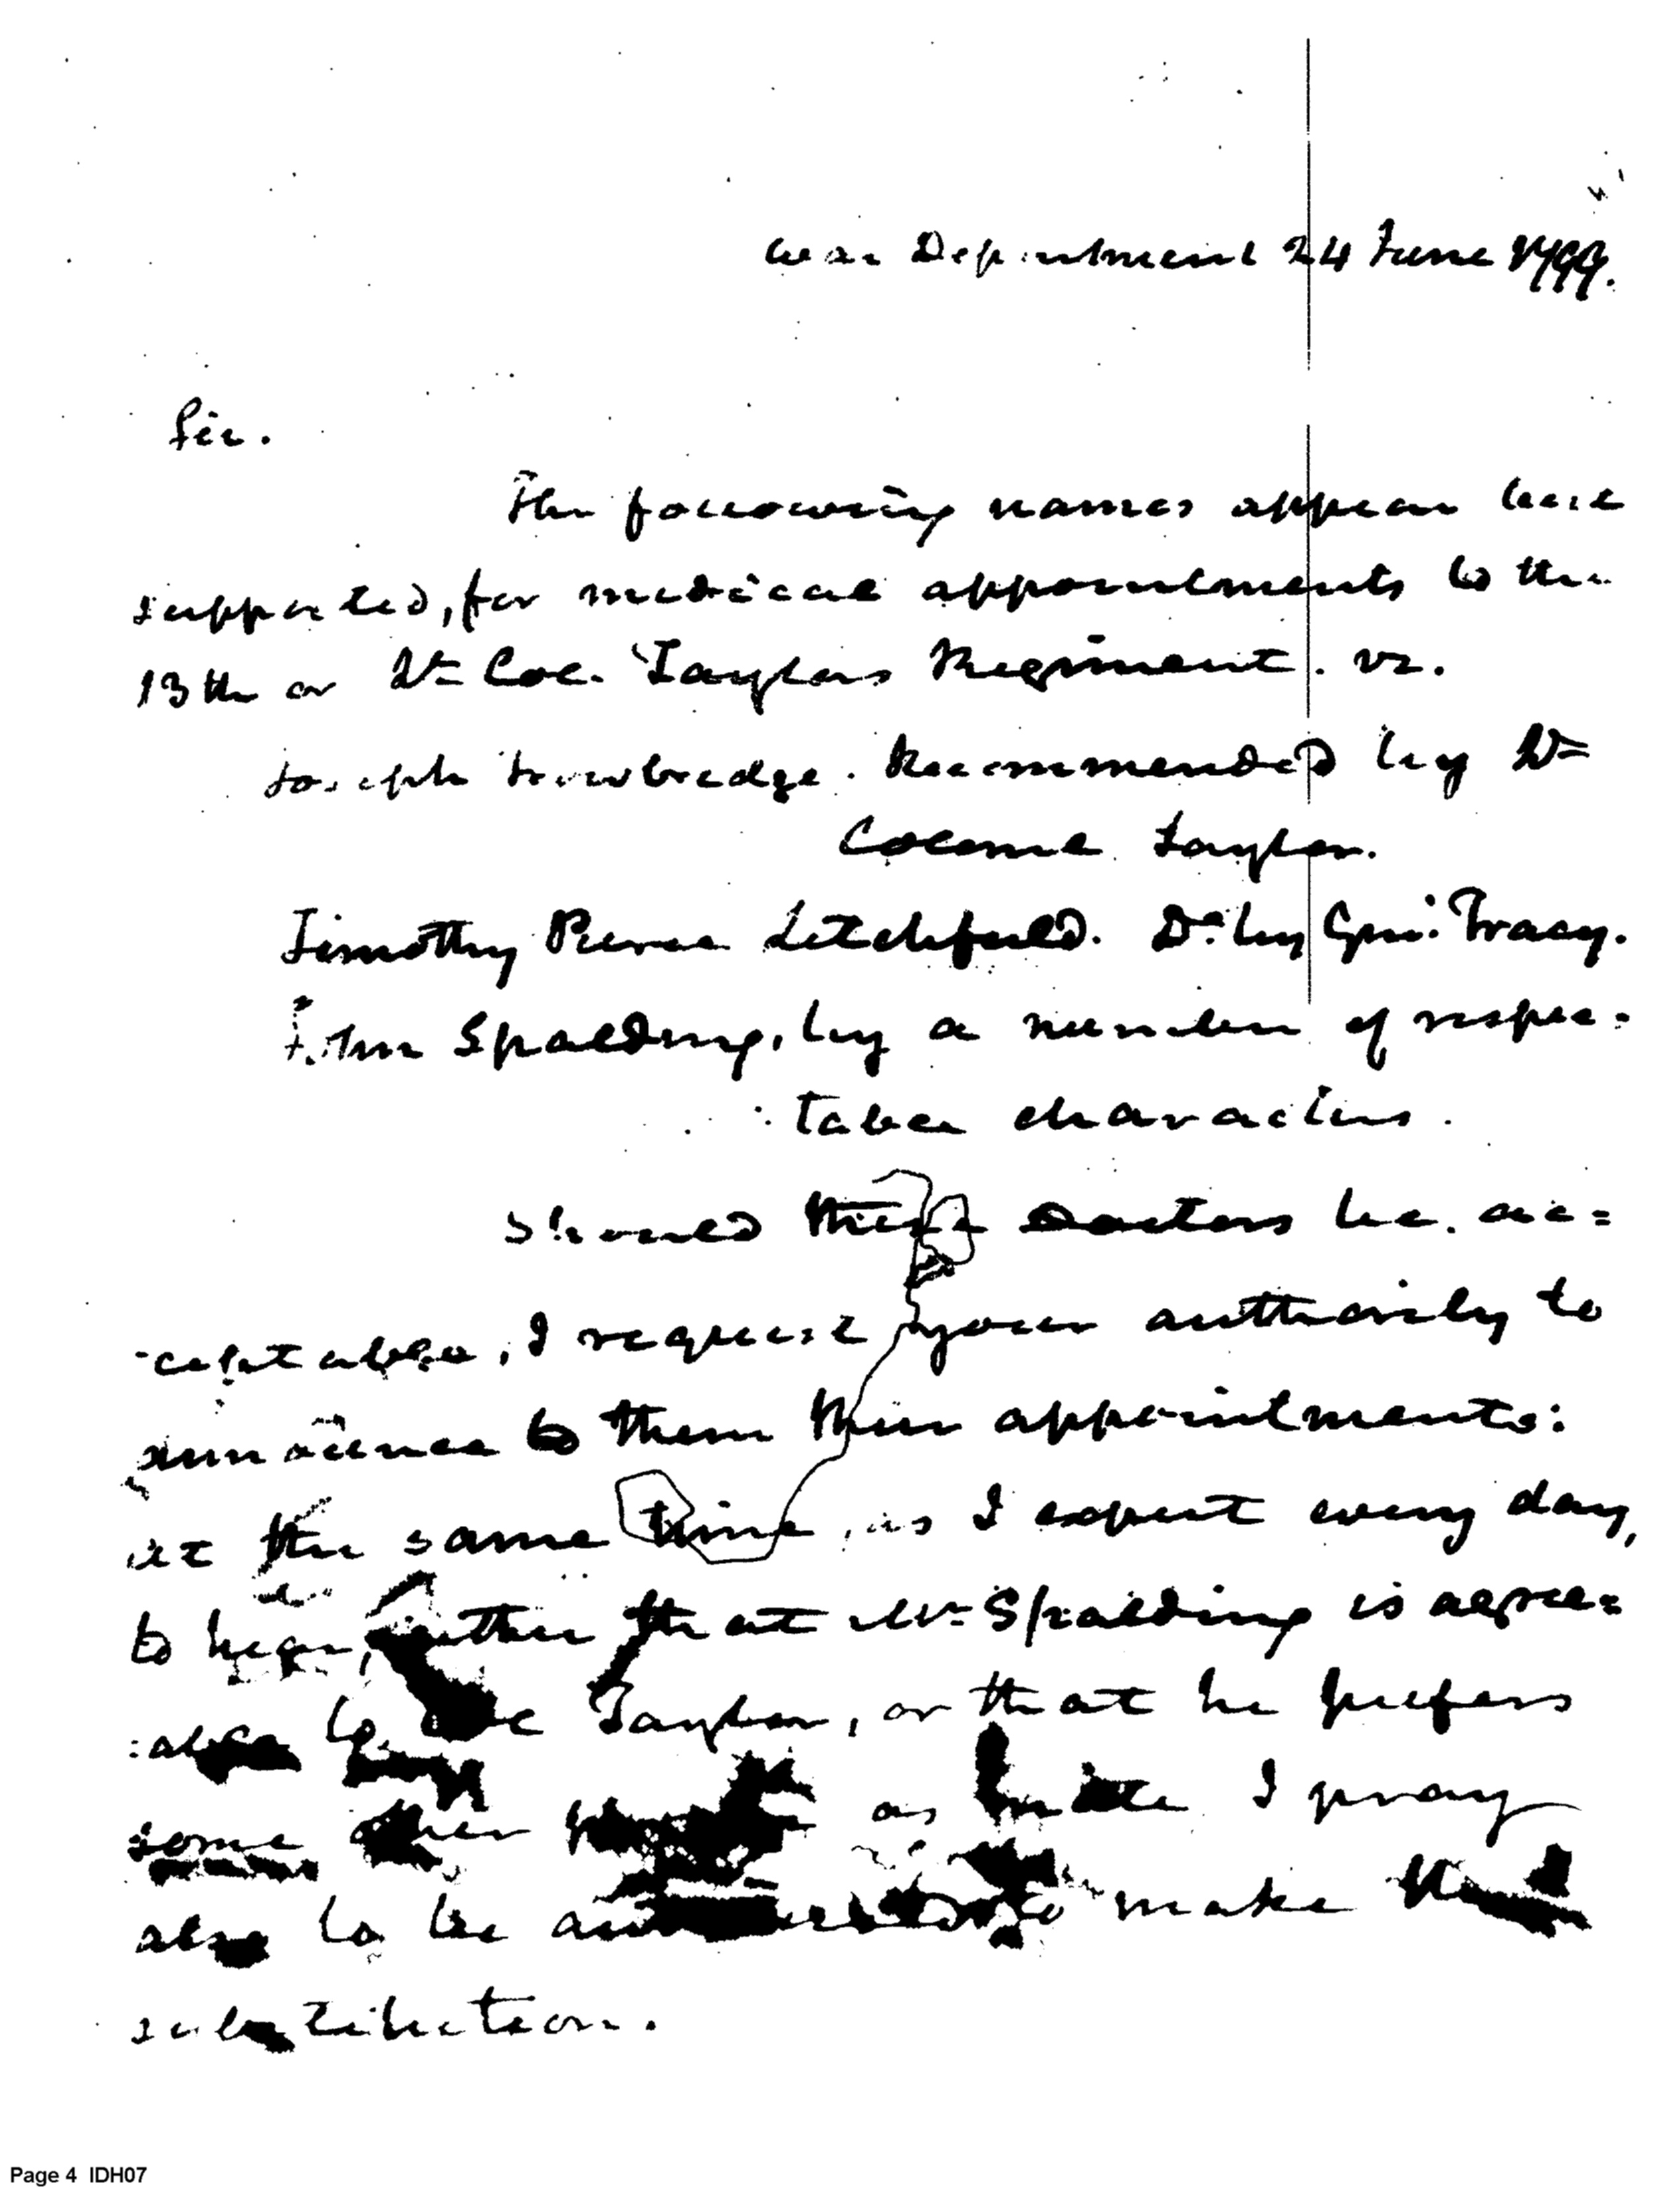 War Department 24 June 1799.
Sir.
The following names appear best
supported, for medical appointments to the
13th or Lt Col. Taylors Regiment. vz.
Joseph Trowbridge. Recommended by Lt
Colonel Taylor.
Timothy Pierce Litchfield. Do. by Genl. Tracy.
John Spalding, by a number of respec=
:table characters.
Should these Doctors be ac=
-ceptable, I request your authority to
announce to them their appointments:
at the same time, as I expect every day,
to hear, either that Mr. Spalding is agree=
:able to Col Taylor, or that he prefers
some other as mate I pray
also to be to make the
substitution.
Page 4 IDH07